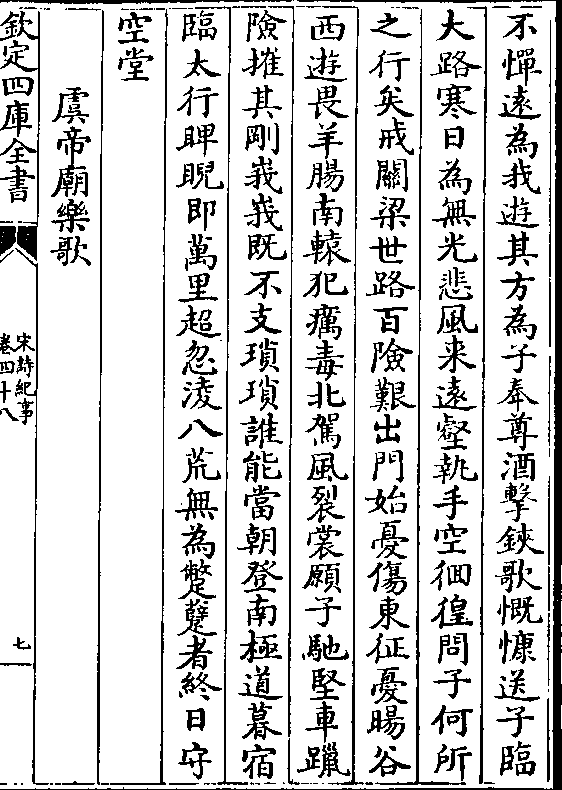 不憚遠為我遊其方為子奉尊酒擊鋏歌慨慷送子臨
大路寒日為無光悲風来遠壑執手空徊徨問子何所
之行矣戒關梁世路百險艱出門始憂傷東征憂暘谷
西遊畏羊腸南轅犯癘毒北駕風裂裳願子馳堅車躐
險摧其剛峩峩既不支瑣瑣誰能當朝登南極道暮宿
臨太行睥睨即萬里超忽凌八荒無為蹩躠者終日守
空堂
虞帝廟樂歌
欽定四庫全書
宋詩紀事
卷四十八
七